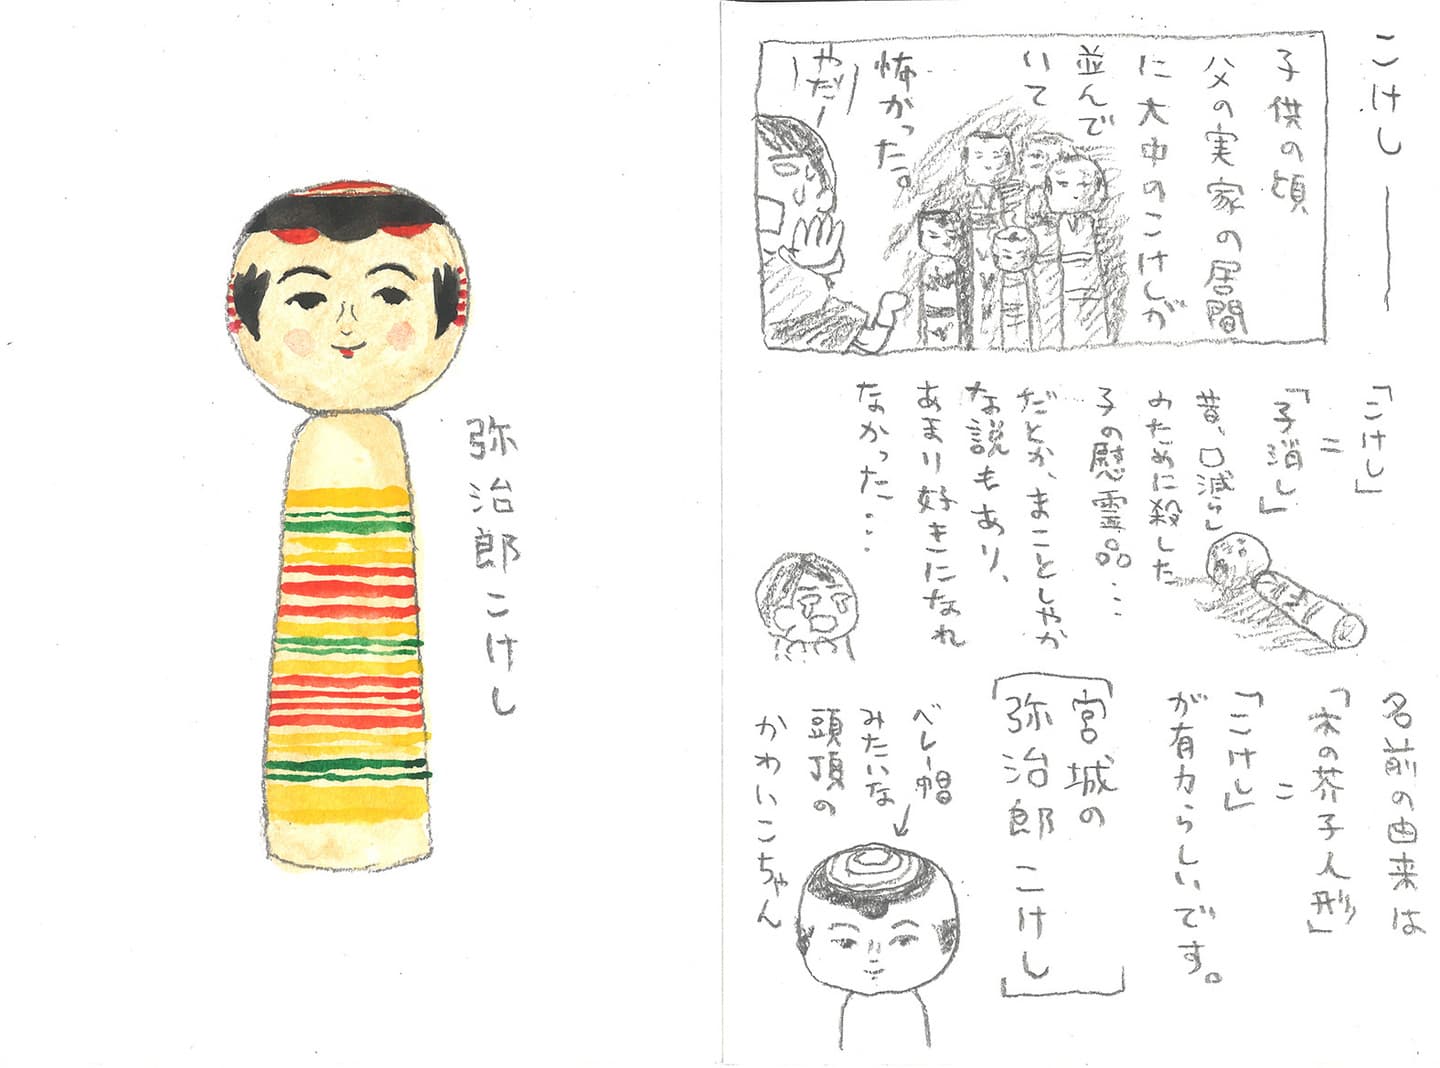 こけし
子供の頃
父の実家の居間
に大中のこけしが
並んで
いて
怖かった。
やだー
「こけし」
＝
「子消し」
昔、口減らし
のために殺した
子の慰霊品・・・
だとか、まことしやか
な説もあり、
あまり好きになれ
なかった・・・
名前の由来は
「木の芥子人形」
＝
「こけし」
が有力らしいです。
宮城の
弥治郎こけし
ベレー帽
みたいな
頭頂の
かわいこちゃん
弥治郎こけし